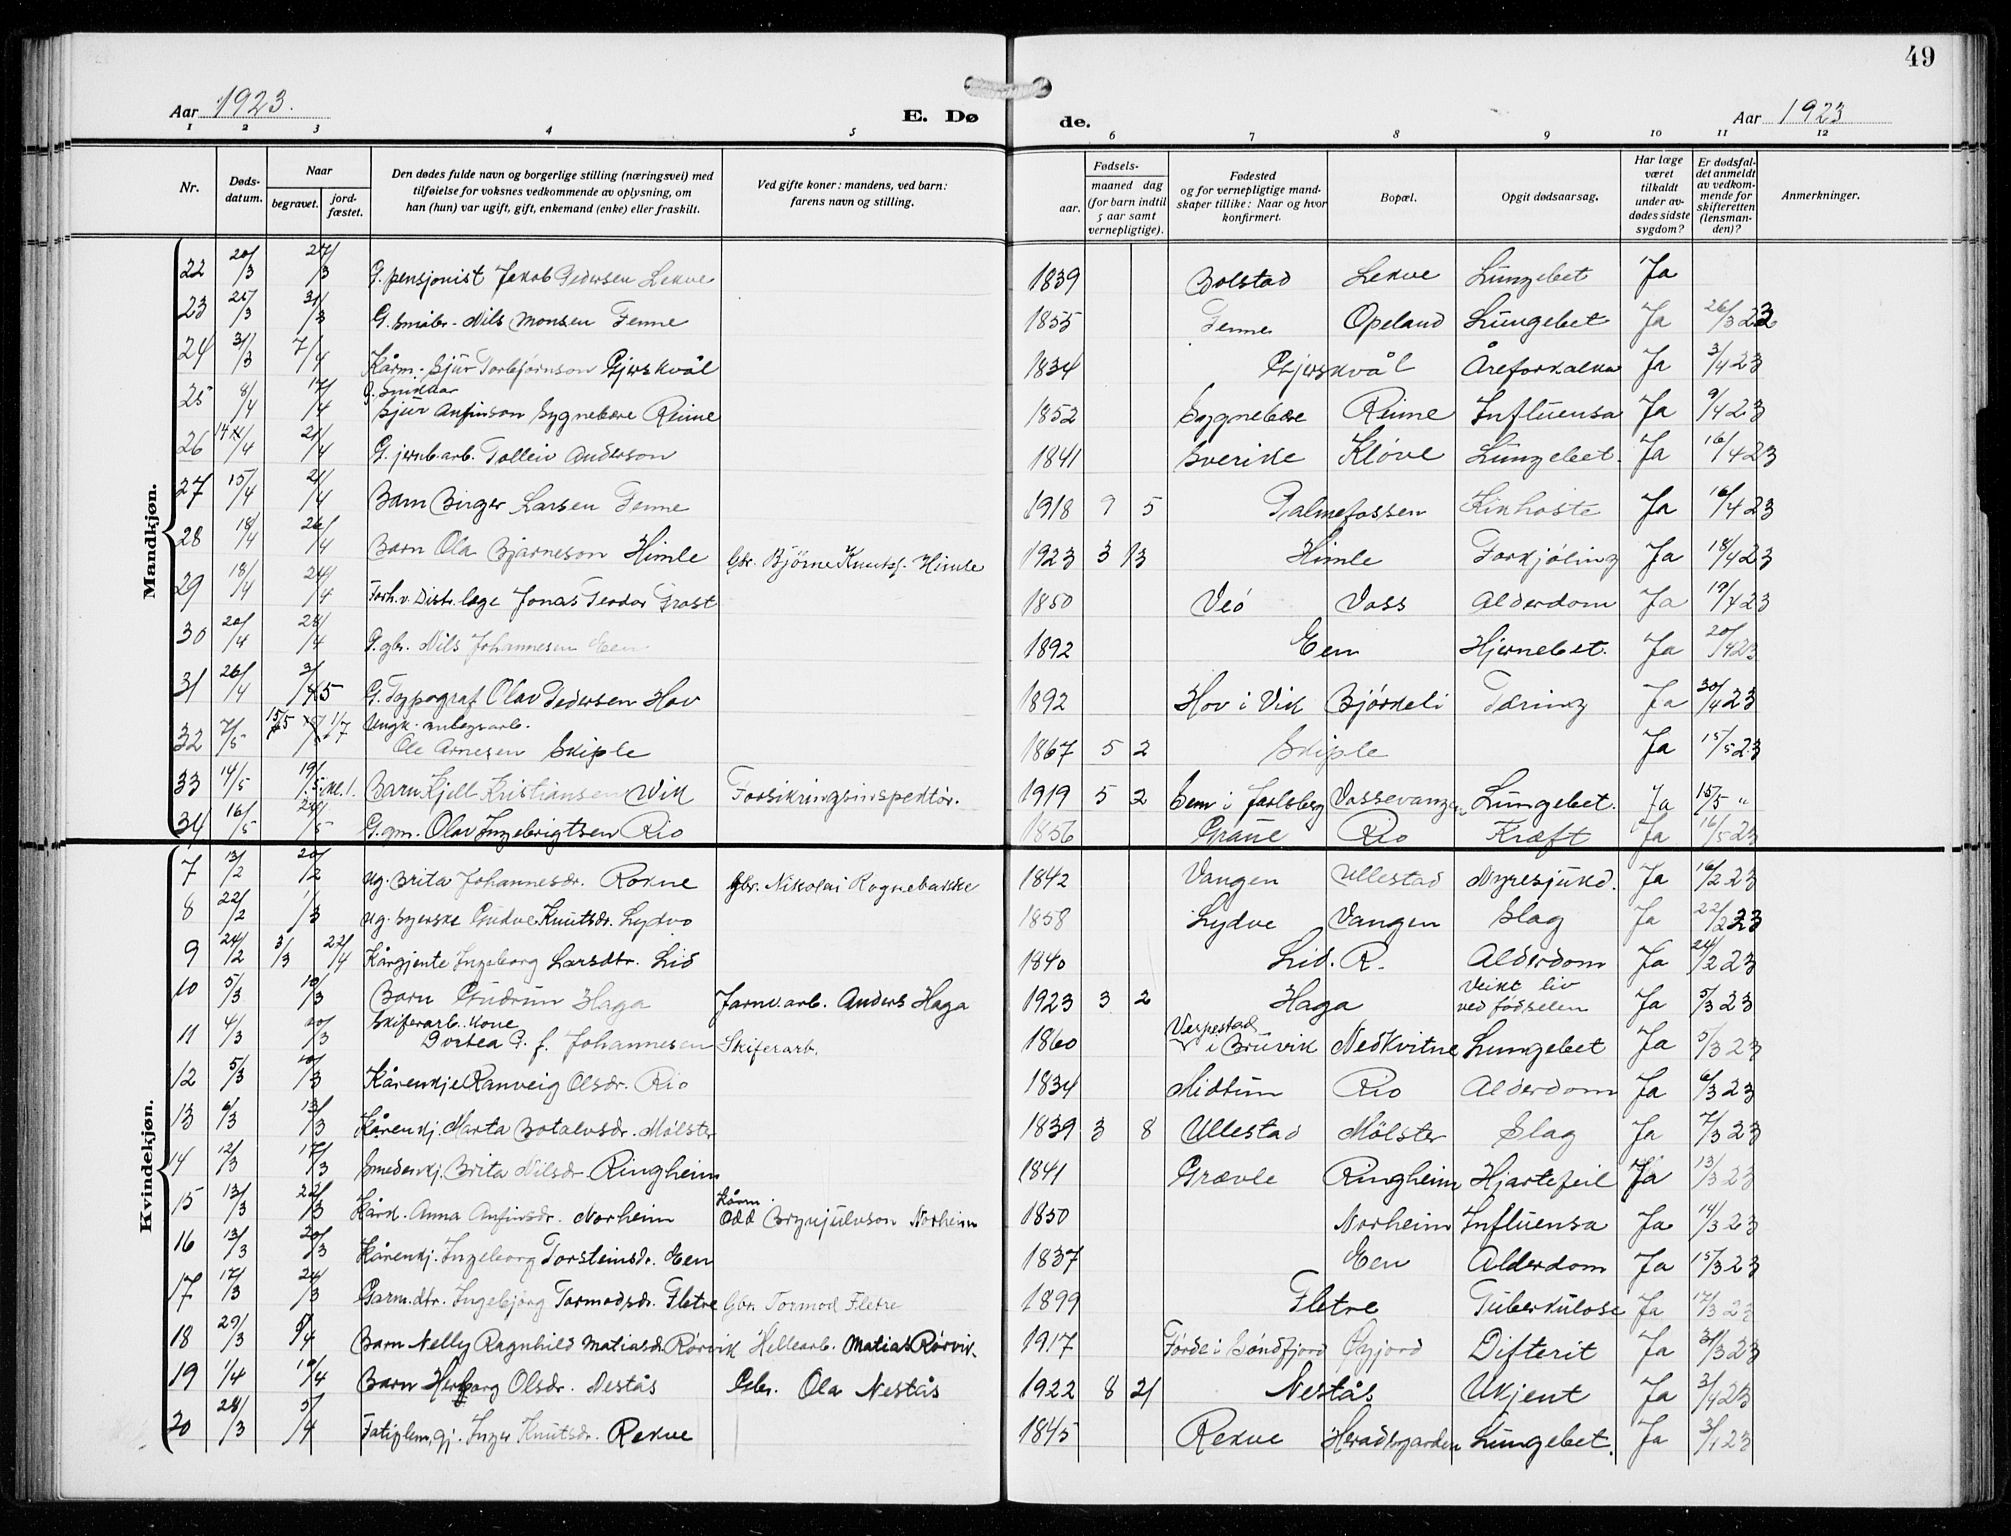 49
Aar 1923. E. Dø de. Aar 1923
1 2 3 4 5 6 7 8 9 10 11 12
Nr. Døds-datum. Naar begravet. jord-fæstet. Den dødes fulde navn og borgerlige stilling (næringsvei) med tilføielse for voksnes vedkommende av oplysning, om han (hun) var ugift, gift, enkemand (enke) eller fraskilt. Ved gifte koner: mandens, ved barn: farens navn og stilling. Fødsels- aar. maaned dag (for barn indtil 5 aar samt vernepligtige). Fødested og for vernepligtige mand-skaper tillike: Naar og hvor konfirmert. Bopæl. Opgit dødsaarsag. Har læge været tilkaldt under av-dødes sidste sygdom? Er dødsfal-det anmeldt av vedkom-mende for skifteretten (lensman-den)? Anmerkninger.
Mandkjøn.
22 20/3 27/3 G. pensjonist Jakob Pedersen Lekve 1839 Bolstad Lekve Lungebet Ja
23 25/3 31/3 G. småbr. Nils Monsen Tenne 1855 Tenne Opeland Lungebet Ja 26/3 23
24 31/3 7/4 Kårm. Sjur Torbjørnson Gjerskvål 1834 Gjerskvål Åreforkalkn Ja 3/4 23
25 8/4 17/4 G. Snikkar Sjur Anfinson Sygnebere Reime 1852 Sygnebere Reime Influensa Ja 9/4 23
26 14/4 21/4 G. jernb.arb. Tolleiv Anderson 1841 Sverike Kløve Lungebet. Ja 16/4 23
27 15/4 21/4 Barn Birger Larsen Tenne 1918 9 5 Palmefossen Kinhoste Ja 16/4 23
28 18/4 26/4 Barn Ola Bjarneson Himle Gbr. Bjørne Knutss. Himle 1923 3 13 Himle Forkjøling Ja 18/4 23
29 18/4 24/4 Forh. v. Distr. læge Jonas Teodor Grost 1850 Veø Voss Alderdom Ja 19/4 23
30 20/4 28/4 G. gbr. Nils Johannesen Een 1892 Een Hjernebet. Ja 20/4 23
31 26/4 3/5 G. Typograf Olav Pedersen Hov 1892 Hov i Vik Bjørkeli Tæring Ja 30/4 23
32 7/5 15/5 1/7 Ungk. anlegsarb. Ole Arnesen Skiple 1867 5 2 Skiple Ja 15/5 23
33 14/5 19/5 kl. 1. Barn Kjell Kristiansen Vik Forsikringsinspektør. 1919 5 2 Sem i Jarlsberg Vossevangen Lungebet. Ja 15/5 "
34 16/5 24/5 G. gm. Olav Ingebrigtsen Rio 1856 Graue Rio Kræft Ja 16/5 23
Kvindekjøn.
7 13/2 20/2 Ug. Brita Johannesdr. Rokne Gbr. Nikolai Rognebakke 1842 Vangen Ullestad Nyresjukd. Ja 16/2 23
8 22/2 1/3 Ug. Syerske Gudve Knutsdr. Lydvo 1858 Lydve Vangen Slag Ja 22/2 23
9 24/2 3/3 22/4 Kårgjente Ingeborg Larsdtr. Lid 1840 Lid. R. Alderdom Ja 24/2 23
10 5/3 10/3 Barn Gudrun Haga Jarnv.arb. Anders Haga 1923 3 2 Haga Veikt liv ved fødselen Ja 5/3 23
11 4/3 20/3 Skiferarb. kone Dortea P. f. Johannesen Skiferarb. 1860 Veepestad i Bruvik Nedkvitne Lungebet Ja 5/3 23
12 5/3 10/3 Kårenkje Ranveig Olsdr. Rio 1834 Midtun Rio Alderdom Ja 6/3 23
13 6/3 13/3 Kårenkj. Marta Botolvsdr. Mølster 1839 3 8 Ullestad Mølster Slag Ja 7/3 23
14 12/3 17/3 Smedenkj. Brita Nilsdr Ringheim 1841 Grævle Ringheim Hjartefeil Ja 13/3 23
15 13/3 22/3 Kårk. Anna Anfinsdr. Norheim Kårm. Odd Brynjulvson Norheim 1850 Norheim Influensa Ja 14/3 23
16 13/3 20/3 Kårenkj. Ingeborg Torsteinsdr. Een 1837 Een Alderdom Ja 15/3 23
17 17/3 24/3 Garm.dtr. Ingebjørg Tormodsdr. Fletre Gbr. Tormod Fletre 1899 Fletre Tuberkulose Ja 17/3 23
18 29/3 5/4 Barn Nelly Ragnhild Matiasdr Rørvik Hellearb. Matias Rørvik. 1917 Førde i Søndfjord Øyjord Difterit Ja 31/3 23
19 1/4 10/4 Barn Herborg Olsdr. Nestås Gbr. Ola Nestås 1922 8 21 Nestås Ukjent Ja 3/4 23
20 28/3 5/4 Fatiglem, gj. Inger Knutsdr. Rekve 1845 Rekve Heradsgarden Lungebet. Ja 3/4 23